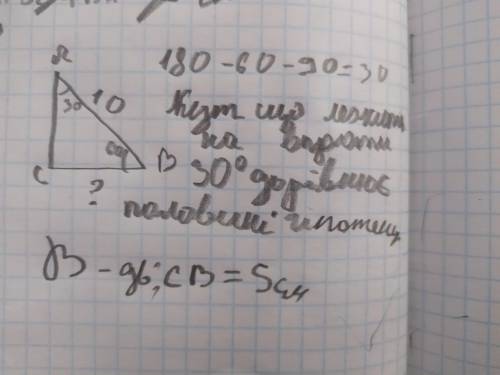 180-60-90=30
A
30
10
Кут що лежить
на впроти
60
B
30° дорівнює
C
?
половині гіпотенуз
В-дь; CB=5см